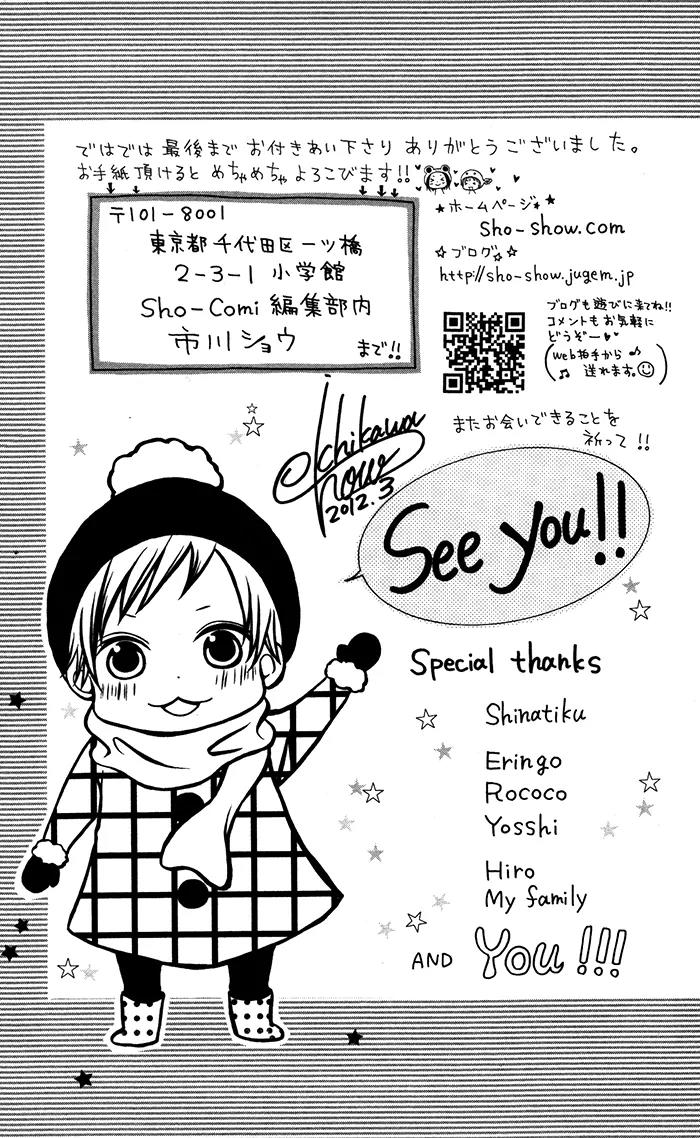 ではでは最後までお付きあい下さりありがとうございました。
お手紙頂けるとめちゃめちゃよろこびます!!
〒101-8001
東京都千代田区一ツ橋
2-3-1 小学館
Sho-Comi 編集部内
市川ショウ
まで!!
★ホームページ★
Sho-show.com
☆ブログ☆
http://sho-show.jugem.jp
ブログも遊びに来てね!!
コメントもお気軽に
どうぞー♥♥
(web拍手から♪
♫送れます。☺)
Ichikawa
Show
2012.3
またお会いできることを
祈って!!
See you!!
Special thanks
Shinatiku
Eringo
Rococo
Yosshi
Hiro
My family
AND You!!!